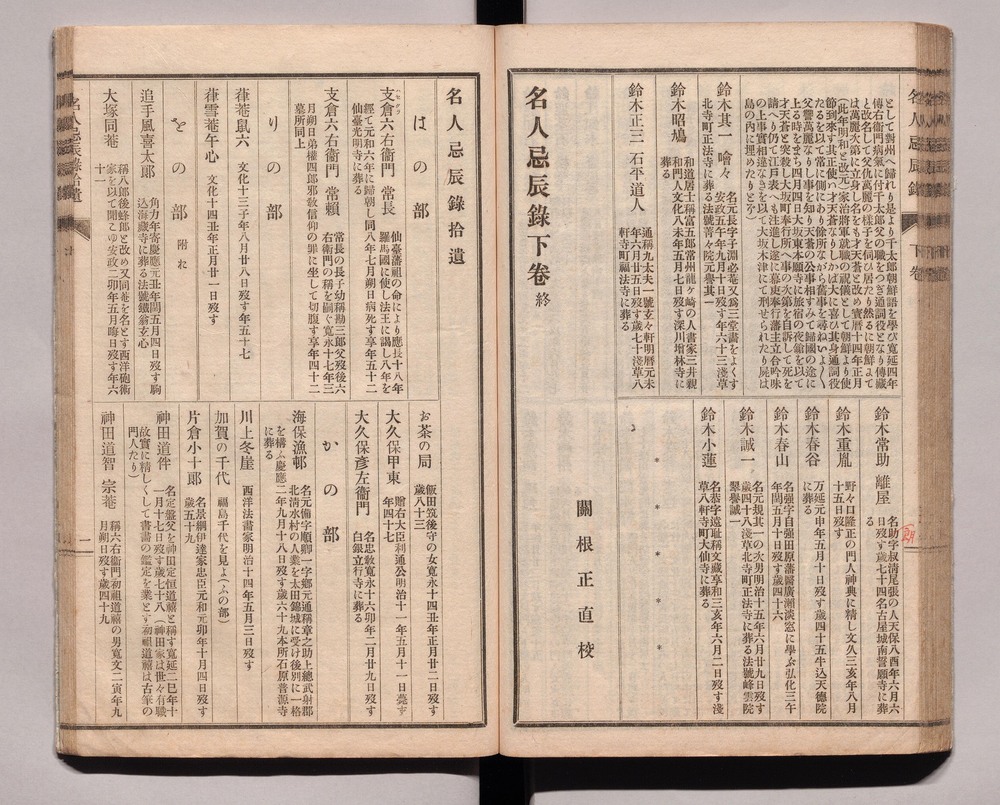 名人忌辰錄 下卷
として對州へ歸れり是より千太郎朝鮮語を學び寬延四年
傳右衞門病氣に付千太郎父の職をつぎ通詞役となり傳藏
と改名して父仇萬麗の樣子を伺ひ居たり然るに朝鮮よて
は萬麗次第に立身し名をも才天蒼と改め寶曆十四年正月
(此年明和と改元)家治將軍就職の祝儀として朝鮮より使
節到來す其正使い才天蒼なりしかば大に喜び其身通詞役
たるを以て常に側にあり餘所ながら舊事を尋ねいよ〱
父讐萬麗なりし事を知り天蒼の公事相すみて歸國の途に
上る時を待ち四月四日大坂東本願寺に旅宿の夜鎗を以て
才天蒼と突殺し大坂町奉行所へ事の次第を自訴して死を
請へり仍て江戶表へも注進し遂に幕吏奉行藩主立合吟味
の上事實相違なきを以て大坂木津にて刑せられたり屍は
島の內に埋めたりと云
鈴木其一 噲々
名元長字子淵必菴又爲三堂畵をよくす
安政五午年九月十日歿す年六十三淺草
北寺町正法寺に葬る法號菁々院元譽其一
鈴木昭鳩
和道居士稱富五郎常州龍ヶ崎の人書家三井親
和門人文化八未年五月七日歿す深川增林寺に
葬る
鈴木正三 石平道人
通稱九太夫一號玄々軒明曆元未
年六月廿五日歿す歲七十淺草八
軒寺町福法寺に葬る
鈴木常助 離屋
名助字叔清尾張の人天保八酉年六月六
日歿す歲七十四名古屋城南誓願寺に葬
る
鈴木重胤
野々口隆正の門人神典に精し文久三亥年八月
十五日歿す
鈴木春谷
万延元申年五月十日歿す歲四十五牛込天德院
に葬る
鈴木春山
名强字自强田原藩醫廣瀨淡窓に學ぶ弘化三午
年閏五月十日歿す歲四十六
鈴木誠一
名元規其一の次男明治十五年六月廿九日歿す
歲四十八淺草北寺町正法寺に葬る法號峰雲院
翠譽誠一
鈴木小蓮
名恭字遠耻稱文藏享和三亥年六月二日歿す淺
草八軒寺町大仙寺に葬る
名人忌辰錄下卷終
關根正直校
名人忌辰錄拾遺
はの部
支倉六右衞門 常長
仙臺藩祖の命により應長十八年
羅馬國に使し法王に謁し八年を
經て元和六年に歸朝し同八年七月朔日病死す享年五十二
仙臺光明寺に葬る
支倉六右衞門 常賴
常長の長子幼稱勘三郎父歿後六
右衞門の稱を嗣ぐ寬永十七年三
月朔日弟權四郎邪敎信仰の罪に坐して切腹す享年四十二
墓所同上
りの部
葎菴鼠六
文化十三子年八月廿八日歿す年五十七
葎雪菴午心
文化十四丑年正月廿一日歿す
をの部 附お
追手風喜太郎
角力年寄慶應元丑年閏五月四日歿す駒
込海藏寺に葬る法號鐵翁玄心
大塚同菴
稱八郎後蜂郎と改め又同菴を名とす西洋砲術
家を以て聞こゆ安政二卯年五月晦日歿す年六
十一
お茶の局
飯田筑後守の女寬永十四丑年正月廿二日歿す
歲八十三
大久保甲東
贈右大臣利通公明治十一年五月十一日薨す
年四十七
大久保彥左衞門
名忠敎寬永十六卯年二月廿九日歿す
白銀立行寺に葬る
かの部
海保漁邨
名元備字順卿一字鄕元通稱章之助上總武射郡
北淸水村の人業を太田錦城に受け後別に一格
を構ふ慶應二年九月十八日歿す歲六十九本所石原普源寺
に葬る
川上冬崖
西洋法畫家明治十四年五月三日歿す
加賀の千代
福島千代を見よ(ふの部)
片倉小十郎
名景綱伊達家忠臣元和元卯年十月四日歿す
歲五十九
神田道伴
名定盤父を神田定恒道禧と稱す寬延二巳年十
一月十七日歿す歲七十八(神田家は世々有職
故實に精しくして書畵の鑑定を業とす初祖道禧は古筆の
門人たり)
神田道智 宗菴
稱六右衞門初祖道禧の男寬文二寅年九
月朔日歿す歲四十九
名人忌辰錄拾遺
一